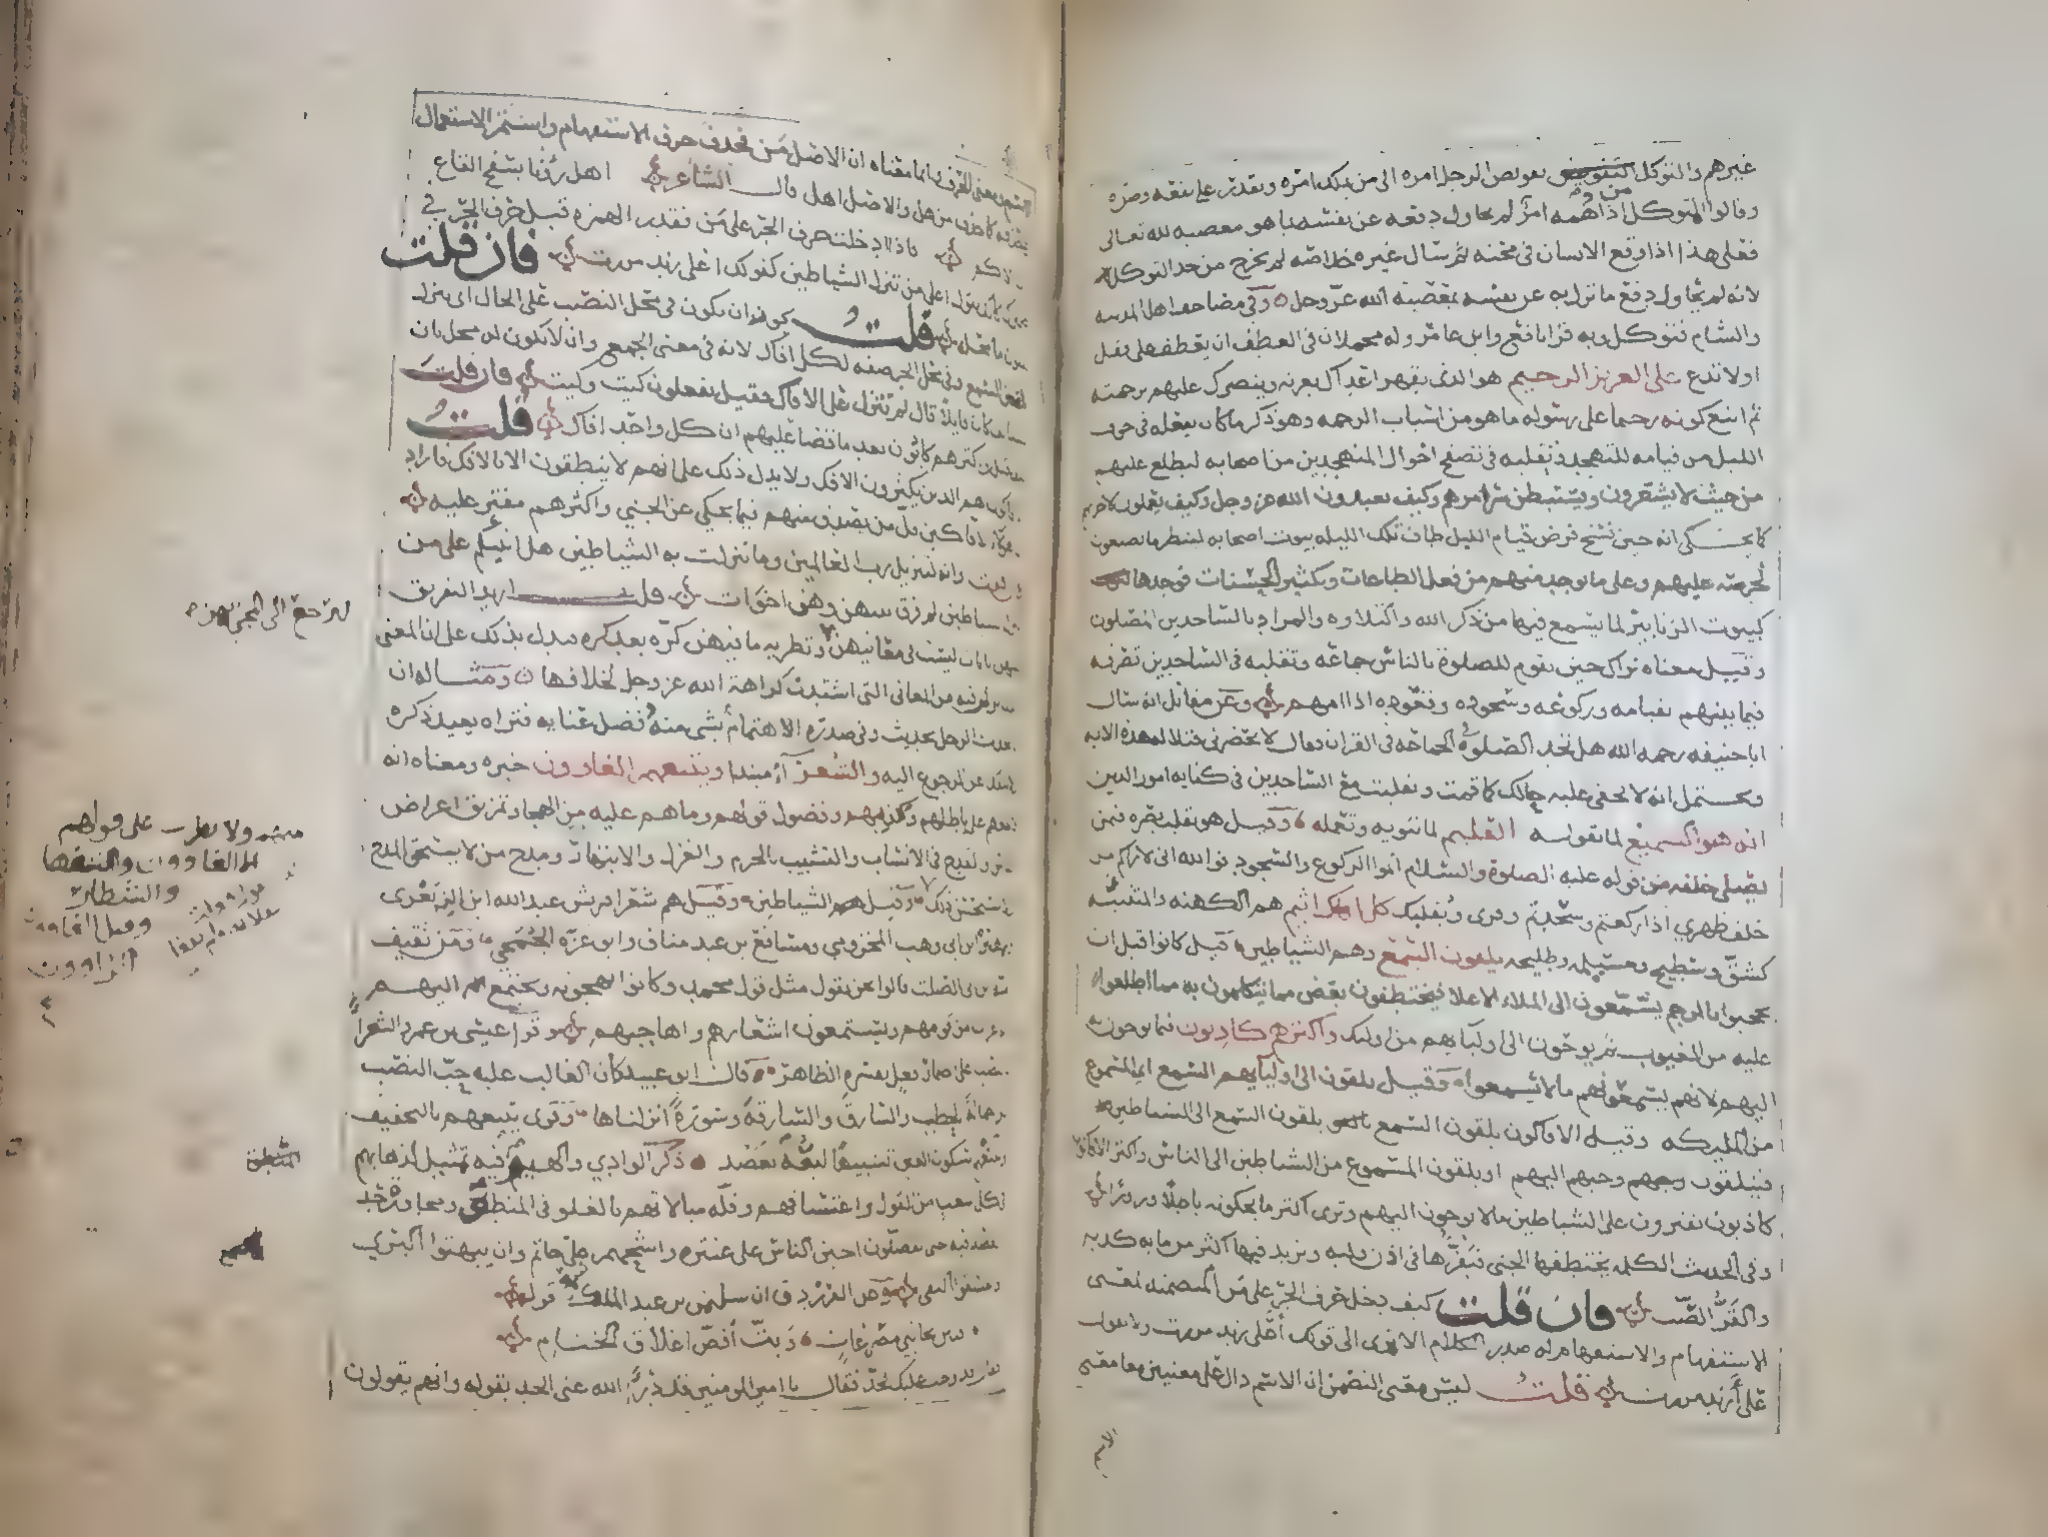 غيرهم والتوكل تفويض الرجل امره الى من يملك امره ويقدر على نفعه وضره
وقالوا المتوكل من اذا دهمه امر لم يحاول دفعه عن نفسه بما هو معصية لله تعالى
فعلى هذا اذا وقع الانسان في محنة ثم سال غيره خلاصه لم يخرج من حد التوكل
لانه لم يحاول دفع ما نزل به عن نفسه بمعصية الله عز وجل وفي مصاحف اهل المدينه
والشام فتوكل وبه قرا نافع وابن عامر وله محملان في العطف ان يعطف على فقل
او لا تدع على العزيز الرحيم هو الذي يقهر اعداك بعزته وينصرك عليهم برحمته
ثم اتبع كونه رحيما على رسوله ما هو من اسباب الرحمه وهو ذكر ما كان يفعله في جوف
الليل من قيامه للتهجد وتقلبه في تصفح احوال المتهجدين من اصحابه ليطلع عليهم
من حيث لا يشعرون ويستبطن سر امرهم وكيف يعبدون الله عز وجل وكيف يعملون لاخرتهم
كما يحكى انه حين نسخ فرض قيام الليل طاف تلك الليله ببيوت اصحابه لينظر ما يصنعون
لحرصه عليهم وعلى ما يوجد منهم من فعل الطاعات وتكثير الحسنات فوجدها
كبيوت الزنابير لما يسمع فيها من ذكر الله والتلاوه والمراد بالساجدين المصلون
وقيل معناه يراك حين تقوم للصلوة بالناس جماعة وتقلبه في الساجدين تصرفه
فيما بينهم بقيامه وركوعه وسجوده وقعوده اذا امهم وعن مقاتل انه سال
ابا حنيفه رحمه الله هل تجد الصلوة في الجماعة في القران فقال لا يحضرني فتلا له هذه الايه
ويحتمل انه لا يخفى عليه حالك كلما قمت وتقلبت مع الساجدين في كفايه امور الدين
انه هو السميع لما تقوله العليم لما تنويه وتعمله وقيل هو تقلب بصره فيمن
يصلي خلفه من قوله عليه الصلوة والسلام اتموا الركوع والسجود فوالله اني لاراكم من
خلف ظهري اذا ركعتم وسجدتم وقرى ويقلبك كل افاك اثيم هم الكهنة والمتنبئة
كشق وسطيح ومسيلمه وطليحه يلقون السمع وهم الشياطين قيل كانوا قبل ان
يحجبوا بالرجم يستمعون الى الملاء الاعلا فيختطفون بعض مما يتكلمون به مما اطلعوا
عليه من الغيوب ثم يوحون الى اوليايهم من اوليك واكثرهم كاذبون فيما يوحون به
اليهم لانهم يستمعونهم ما لا يسمعوا وقيل يلقون الى اوليايهم السمع اي المسموع
من المليكه وقيل الافاكون يلقون السمع الى الشياطين
فيتلقون وحيهم اليهم او يلقون المسموع من الشياطين الى الناس واكثر الافاكين
كاذبون يفترون على الشياطين ما لا يوحون اليهم وترى اكثر ما يحكونه باطلا وزورا
وفي الحديث الكلمه يختطفها الجني فيقرها في اذن وليه ويزيد فيها اكثر من مايه كذبه
والقر الصب فان قلت كيف دخل حرف الجر على من المتضمنه لمعنى
الاستفهام والاستفهام له صدر الكلام الا ترى الى قولك اعلى زيد مررت ولا تقول
على ازيد مررت قلت ليس معنى التضمن ان الاسم دال على معنيين معا معنى
الاسم
الاسم ومعنى الحرف وانما معناه ان الاصل امن فحذف حرف الاستفهام واستمر الاستعمال
على حذفه كما حذف من هل والاصل اهل قال الشاعر اهل راونا بسفح القاع
ذي الاكم فاذا ادخلت حرف الجر على من فقدر الهمزه قبل حرف الجر في
ضميرك كانك تقول اعلى من تنزل الشياطين كقولك اعلى زيد مررت فان قلت
يلقون ما محله قلت يجوز ان يكون في محل النصب على الحال اي تنزل
ملقين السمع وفي محل الجر صفه لكل افاك لانه في معنى الجمع وان لا يكون له محل بان
يستانف كان قايلا قال لم تنزل على الافاكين فقيل يفعلون كيت وكيت فان قلت
كيف قيل واكثرهم كاذبون بعد ما قضا عليهم ان كل واحد افاك قلت
الافاكون هم الذين يكثرون الافك ولا يدل ذلك على انهم لا ينطقون الا بالافك فاراد
ان هؤلاء الافاكين قل من يصدق منهم فيما يحكي عن الجني واكثرهم مفتر عليه
فان قلت وانه لتنزيل رب العالمين وما تنزلت به الشياطين هل انبيكم على من
تنزل الشياطين لم فرق بينهن وهن اخوات قلت اريد التفريق
بينهن بايات ليست في معانيهن وتطريه ما فيهن كره بعد كره فيدل بذلك على ان المعنى
الذي نزلن فيه من المعاني التي اشتدت كراهة الله عز وجل لخلافها ومثاله ان
يحدث الرجل بحديث وفي صدره الاهتمام بشي منه وفضل عنايه فتراه يعيد ذكره
ولا ينفك عن الرجوع اليه والشعرآء مبتدا ويتبعهم الغاوون خبره ومعناه انه
لا يتبعهم على باطلهم وكذبهم وفضول قولهم وما هم عليه من الهجا وتمزيق اعراض
والقدح في الانساب والتشبيب بالحرم والغزل والابتهار ومدح من لا يستحق المدح
ولا يستحسن ذلك وقيل الشياطين وقيل هم شعرا قريش عبد الله ابن الزبعرى
وهبيرة ابن ابي وهب المخزومي ومسافع بن عبد مناف وابو عزه الجمحي ومن ثقيف
امية بن ابي الصلت قالوا نحن نقول مثل قول محمد وكانوا يهجونه ويجتمع اليهم
الاعراب من قومهم ويستمعون اشعارهم واهاجيهم وقرا عيسى بن عمر والشعراء
بالنصب على اضمار فعل يفسره الظاهر قال ابو عبيد كان الغالب عليه حب النصب
قرا حمالة الحطب والسارق والسارقة وسورة انزلناها وقرى يتبعهم بالتخفيف
ويتبعهم بسكون العين تشبيها لبعه بعضد ذكر الوادي والهيوم فيه تمثيل لذهابهم
في كل شعب من القول واعتسافهم وقلة مبالاتهم بالغلو في المنطق ومجاوزة حد
القصد فيه حتى يفضلون اجبن الناس على عنتره واشحهم على حاتم وان يبهتوا البري
ويفسقوا التقي وعن الفرزدق ان سليمن بن عبد الملك سمع قوله
فبتن بجانبي مصرعات وبت افض اغلاق الختام
فقال قد وجب عليك الحد فقال يا امير المومنين قد درا الله عني الحد بقوله وانهم يقولون
ولا يطرب على قولهم
الا الغاوون والسفها
والشطار
وقيل الغاوون
الراوون
المنطق